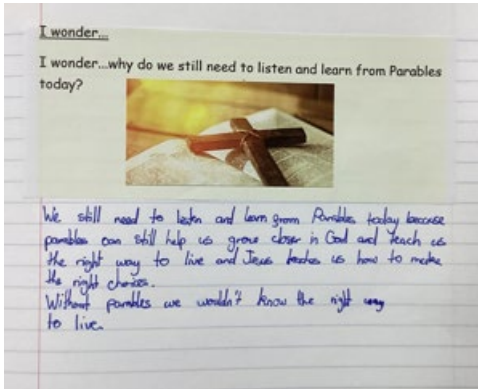 I wonder...
I wonder...why do we still need to listen and learn from Parables
today?
We still need to listen and learn from Parables today because
parables can still help us grow closer in God and teach us
the right way to live and Jesus teaches us how to make
the right choices.
Without parables we wouldn't know the right way
to live.